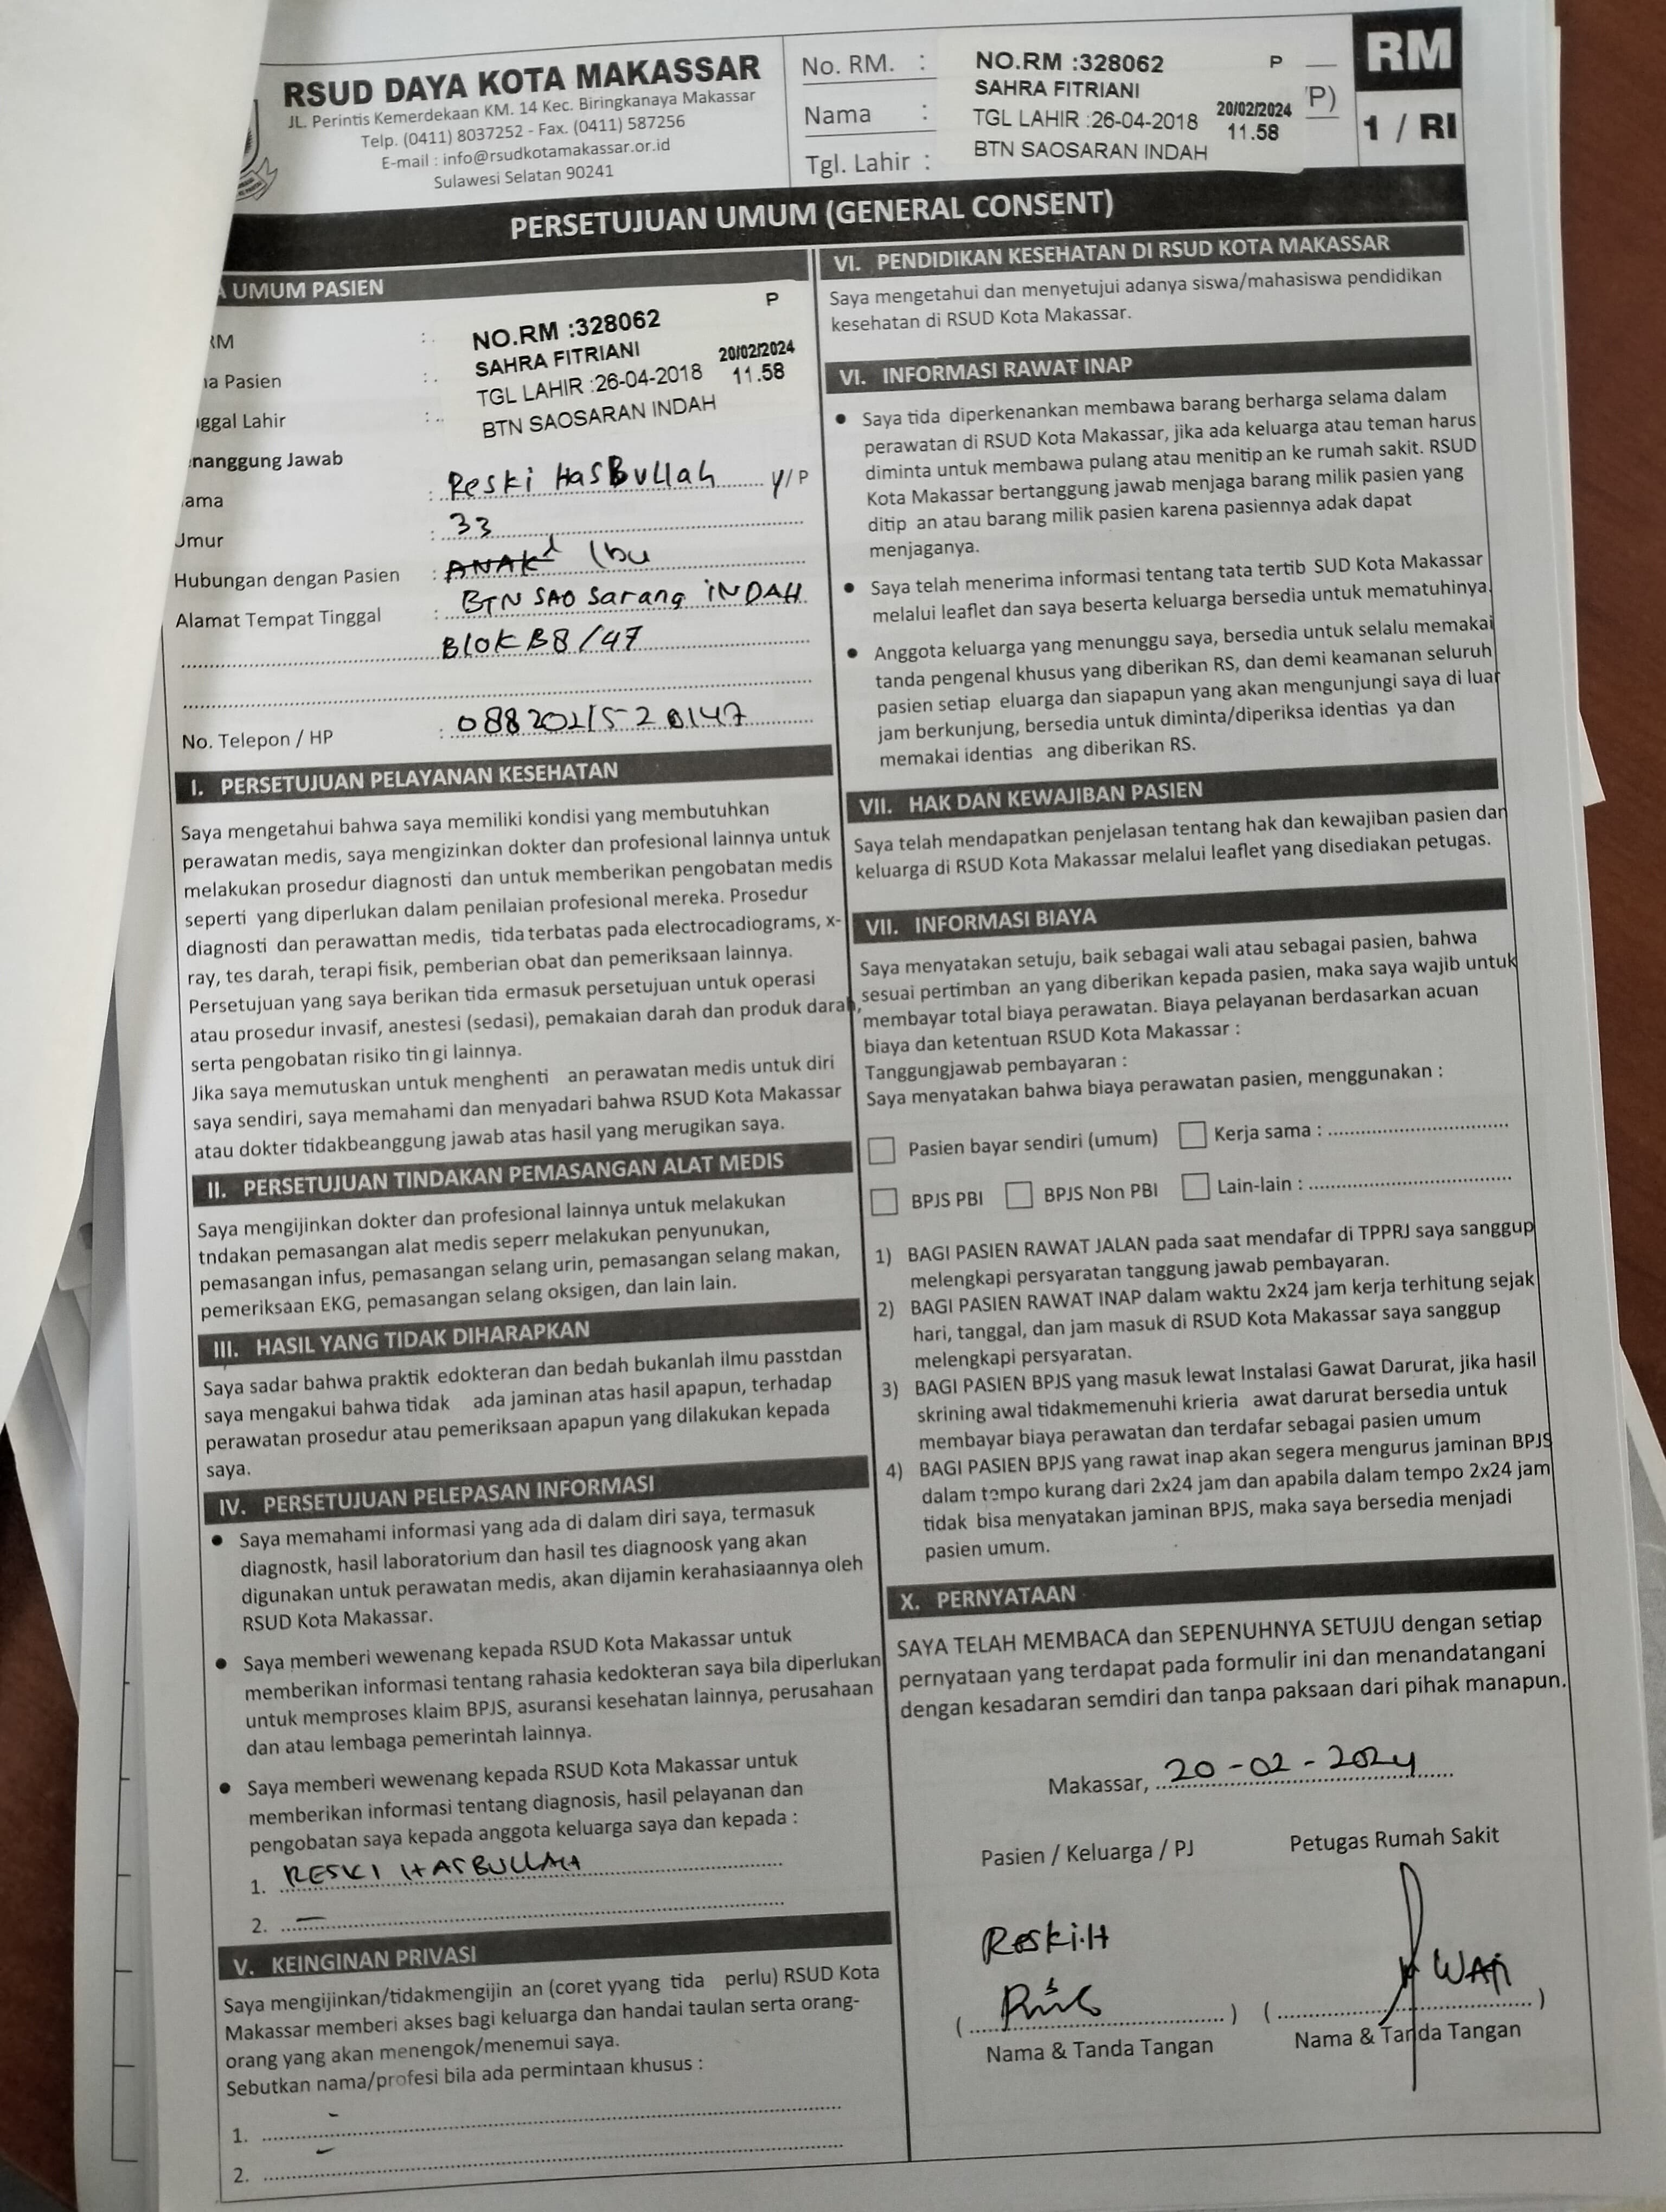 RSUD DAYA KOTA MAKASSAR
JL. Perintis Kemerdekaan KM. 14 Kec. Biringkanaya Makassar
Telp. (0411) 8037252 - Fax. (0411) 587256
E-mail : info@rsudkotamakassar.or.id
Sulawesi Selatan 90241
No. RM. :
Nama :
Tgl. Lahir :
NO.RM :328062 P
SAHRA FITRIANI
TGL LAHIR :26-04-2018 20/02/2024 11.58
BTN SAOSARAN INDAH
P)
RM
1 / RI
PERSETUJUAN UMUM (GENERAL CONSENT)
A UMUM PASIEN
RM :
a Pasien :
ggal Lahir :
NO.RM :328062 P
SAHRA FITRIANI 20/02/2024
TGL LAHIR :26-04-2018 11.58
BTN SAOSARAN INDAH
nanggung Jawab
ama : Reski HasBullah Y/P
Umur : 33
Hubungan dengan Pasien : ANAK Ibu
Alamat Tempat Tinggal : BTN SAO Sarang iNDAH
Blok B8/47
No. Telepon / HP :
I. PERSETUJUAN PELAYANAN KESEHATAN
Saya mengetahui bahwa saya memiliki kondisi yang membutuhkan
perawatan medis, saya mengizinkan dokter dan profesional lainnya untuk
melakukan prosedur diagnosti dan untuk memberikan pengobatan medis
seperti yang diperlukan dalam penilaian profesional mereka. Prosedur
diagnosti dan perawattan medis, tida terbatas pada electrocadiograms, x-
ray, tes darah, terapi fisik, pemberian obat dan pemeriksaan lainnya.
Persetujuan yang saya berikan tida ermasuk persetujuan untuk operasi
atau prosedur invasif, anestesi (sedasi), pemakaian darah dan produk darah,
serta pengobatan risiko tin gi lainnya.
Jika saya memutuskan untuk menghenti an perawatan medis untuk diri
saya sendiri, saya memahami dan menyadari bahwa RSUD Kota Makassar
atau dokter tidakbeanggung jawab atas hasil yang merugikan saya.
II. PERSETUJUAN TINDAKAN PEMASANGAN ALAT MEDIS
Saya mengijinkan dokter dan profesional lainnya untuk melakukan
tndakan pemasangan alat medis seperr melakukan penyunukan,
pemasangan infus, pemasangan selang urin, pemasangan selang makan,
pemeriksaan EKG, pemasangan selang oksigen, dan lain lain.
III. HASIL YANG TIDAK DIHARAPKAN
Saya sadar bahwa praktik edokteran dan bedah bukanlah ilmu passtdan
saya mengakui bahwa tidak ada jaminan atas hasil apapun, terhadap
perawatan prosedur atau pemeriksaan apapun yang dilakukan kepada
saya.
IV. PERSETUJUAN PELEPASAN INFORMASI
● Saya memahami informasi yang ada di dalam diri saya, termasuk
diagnostk, hasil laboratorium dan hasil tes diagnoosk yang akan
digunakan untuk perawatan medis, akan dijamin kerahasiaannya oleh
RSUD Kota Makassar.
● Saya memberi wewenang kepada RSUD Kota Makassar untuk
memberikan informasi tentang rahasia kedokteran saya bila diperlukan
untuk memproses klaim BPJS, asuransi kesehatan lainnya, perusahaan
dan atau lembaga pemerintah lainnya.
● Saya memberi wewenang kepada RSUD Kota Makassar untuk
memberikan informasi tentang diagnosis, hasil pelayanan dan
pengobatan saya kepada anggota keluarga saya dan kepada :
1. RESKI HASBULLAH
2. –
V. KEINGINAN PRIVASI
Saya mengijinkan/tidakmengijin an (coret yyang tida perlu) RSUD Kota
Makassar memberi akses bagi keluarga dan handai taulan serta orang-
orang yang akan menengok/menemui saya.
Sebutkan nama/profesi bila ada permintaan khusus :
1. –
2. –
VI. PENDIDIKAN KESEHATAN DI RSUD KOTA MAKASSAR
Saya mengetahui dan menyetujui adanya siswa/mahasiswa pendidikan
kesehatan di RSUD Kota Makassar.
VI. INFORMASI RAWAT INAP
● Saya tida diperkenankan membawa barang berharga selama dalam
perawatan di RSUD Kota Makassar, jika ada keluarga atau teman harus
diminta untuk membawa pulang atau menitip an ke rumah sakit. RSUD
Kota Makassar bertanggung jawab menjaga barang milik pasien yang
ditip an atau barang milik pasien karena pasiennya adak dapat
menjaganya.
● Saya telah menerima informasi tentang tata tertib SUD Kota Makassar
melalui leaflet dan saya beserta keluarga bersedia untuk mematuhinya.
● Anggota keluarga yang menunggu saya, bersedia untuk selalu memakai
tanda pengenal khusus yang diberikan RS, dan demi keamanan seluruh
pasien setiap eluarga dan siapapun yang akan mengunjungi saya di luar
jam berkunjung, bersedia untuk diminta/diperiksa identias ya dan
memakai identias ang diberikan RS.
VII. HAK DAN KEWAJIBAN PASIEN
Saya telah mendapatkan penjelasan tentang hak dan kewajiban pasien dan
keluarga di RSUD Kota Makassar melalui leaflet yang disediakan petugas.
VII. INFORMASI BIAYA
Saya menyatakan setuju, baik sebagai wali atau sebagai pasien, bahwa
sesuai pertimban an yang diberikan kepada pasien, maka saya wajib untuk
membayar total biaya perawatan. Biaya pelayanan berdasarkan acuan
biaya dan ketentuan RSUD Kota Makassar :
Tanggungjawab pembayaran :
Saya menyatakan bahwa biaya perawatan pasien, menggunakan :
Pasien bayar sendiri (umum) Kerja sama :
BPJS PBI BPJS Non PBI Lain-lain :
1) BAGI PASIEN RAWAT JALAN pada saat mendafar di TPPRJ saya sanggup
melengkapi persyaratan tanggung jawab pembayaran.
2) BAGI PASIEN RAWAT INAP dalam waktu 2x24 jam kerja terhitung sejak
hari, tanggal, dan jam masuk di RSUD Kota Makassar saya sanggup
melengkapi persyaratan.
3) BAGI PASIEN BPJS yang masuk lewat Instalasi Gawat Darurat, jika hasil
skrining awal tidakmemenuhi krieria awat darurat bersedia untuk
membayar biaya perawatan dan terdafar sebagai pasien umum
4) BAGI PASIEN BPJS yang rawat inap akan segera mengurus jaminan BPJS
dalam tempo kurang dari 2x24 jam dan apabila dalam tempo 2x24 jam
tidak bisa menyatakan jaminan BPJS, maka saya bersedia menjadi
pasien umum.
X. PERNYATAAN
SAYA TELAH MEMBACA dan SEPENUHNYA SETUJU dengan setiap
pernyataan yang terdapat pada formulir ini dan menandatangani
dengan kesadaran semdiri dan tanpa paksaan dari pihak manapun.
Makassar, 20-02-2024
Pasien / Keluarga / PJ Petugas Rumah Sakit
Reski.H
( ) ( )
Nama & Tanda Tangan Nama & Tanda Tangan